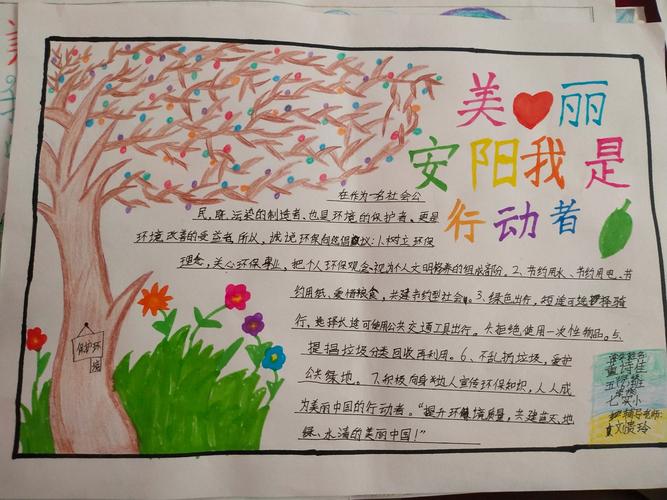 美丽
安阳我是
行动者
在作为一名社会公
民,既污染的制造者、也是环境的保护者、更是
环境改善的受益者,所以,诚说环保向您倡议:1.树立环保
理念,关心环保事业,把个人环保观念视为个人文明修养的组成部分。2、节约用水、节约用电、节
约用纸、爱惜粮食,共建节约型社会。3、绿色出行,短途可选择骑
行,选择长途可使用公共交通工具出行。4.拒绝使用一次性物品。5、
提倡垃圾分类回收再利用。6、不乱扔垃圾,爱护
公共绿地。7.积极向身边人宣传环保知识,人人成
为美丽中国的行动者。“提升环境质量,共建蓝天、地
绿、水清的美丽中国!”
保护环
境
辅导老师: